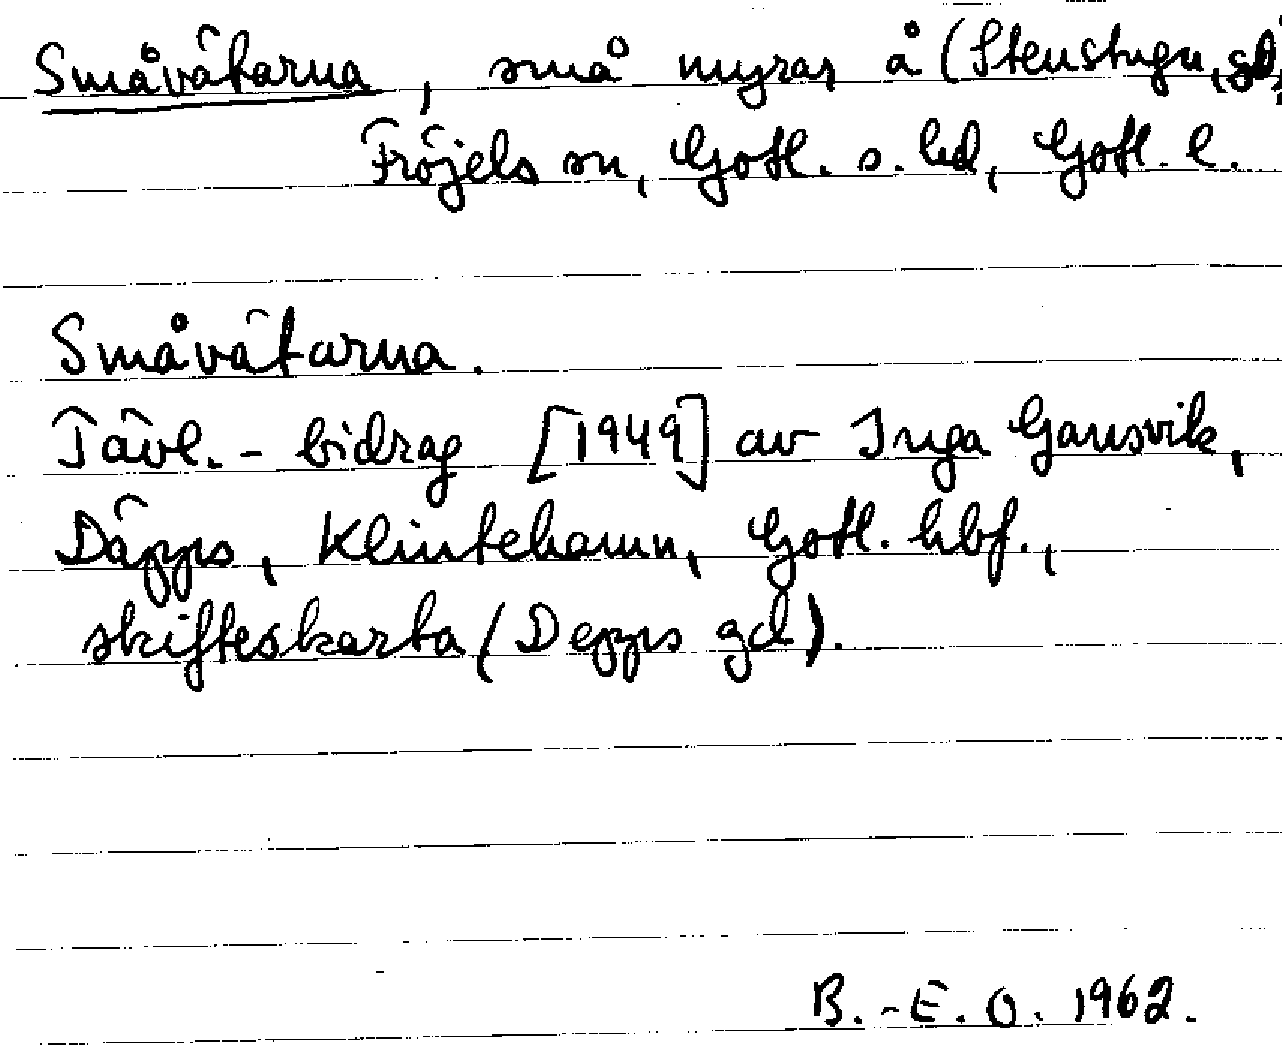 Småvätarna, små myrar å (Stenstugu, gd,
Fröjels sn, Gotl. s. hd, Gotl. l.
Småvätarna.
Tävl.-bidrag [1949] av Inga Gansvik,
Däpps, Klintehamn, Gotl. hbf.,
skifteskarta (Depps gd).
B.-E. O. 1962.